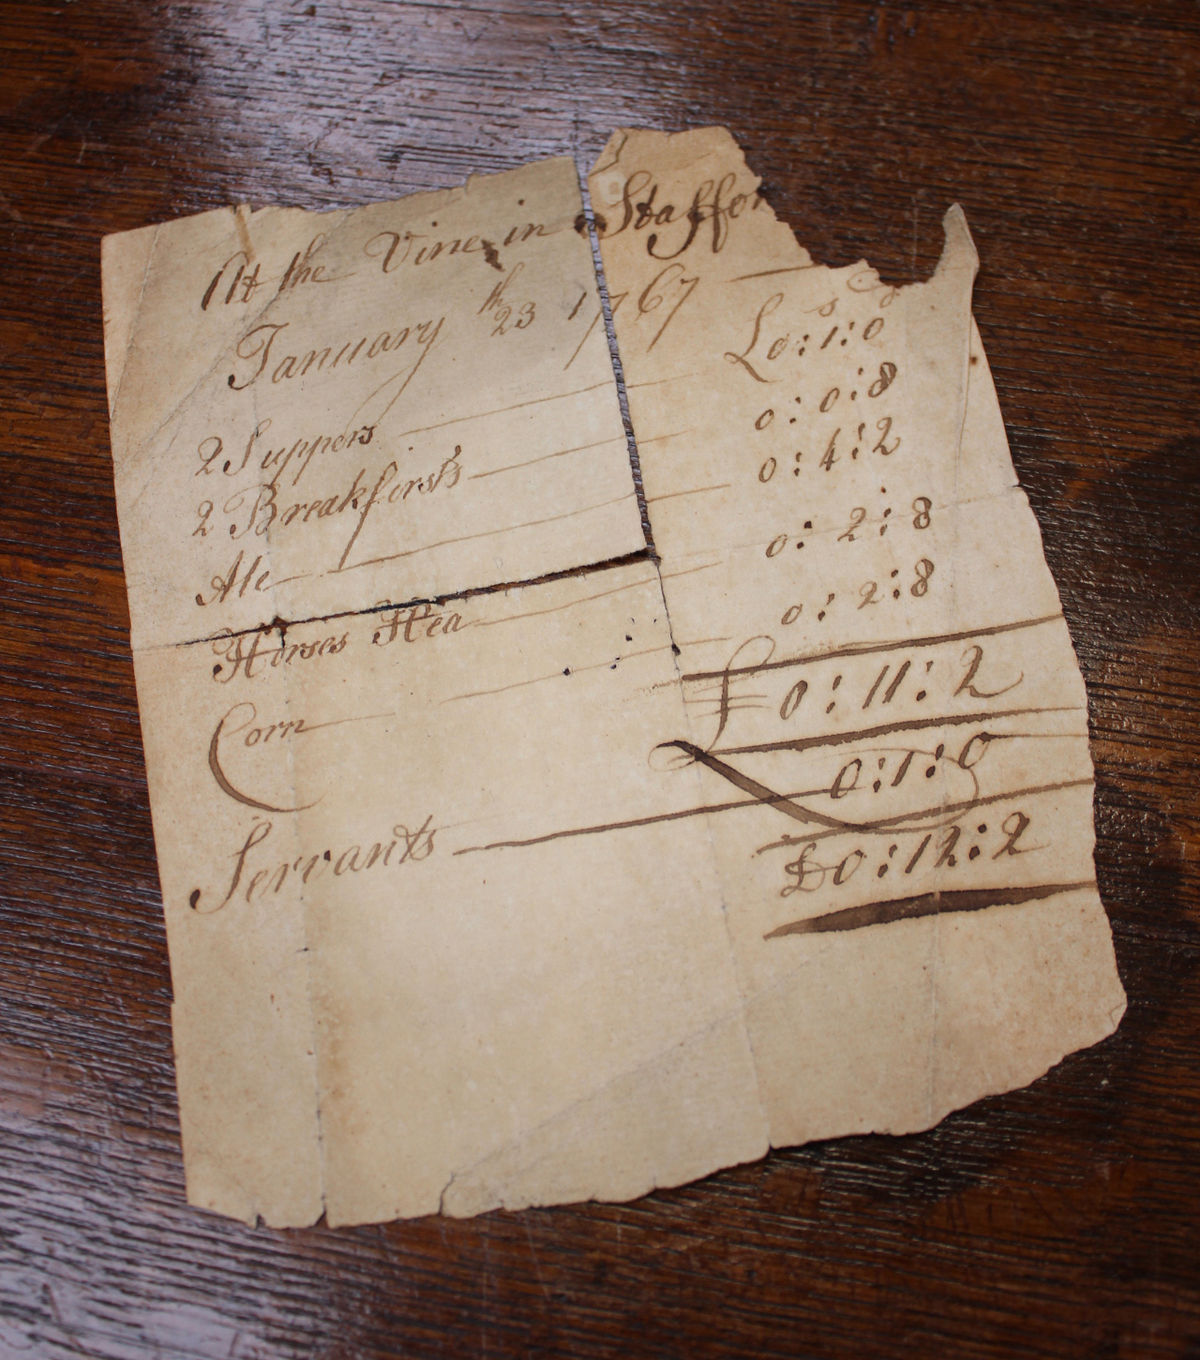 At the Vine in Staffor
January 23th 1767
£ s d
2 Suppers 0:1:0
2 Breakfirsts 0:0:8
Ale 0:4:2
Horses Hea 0:2:8
Corn 0:2:8
£0:11:2
Servants 0:1:0
£0:12:2